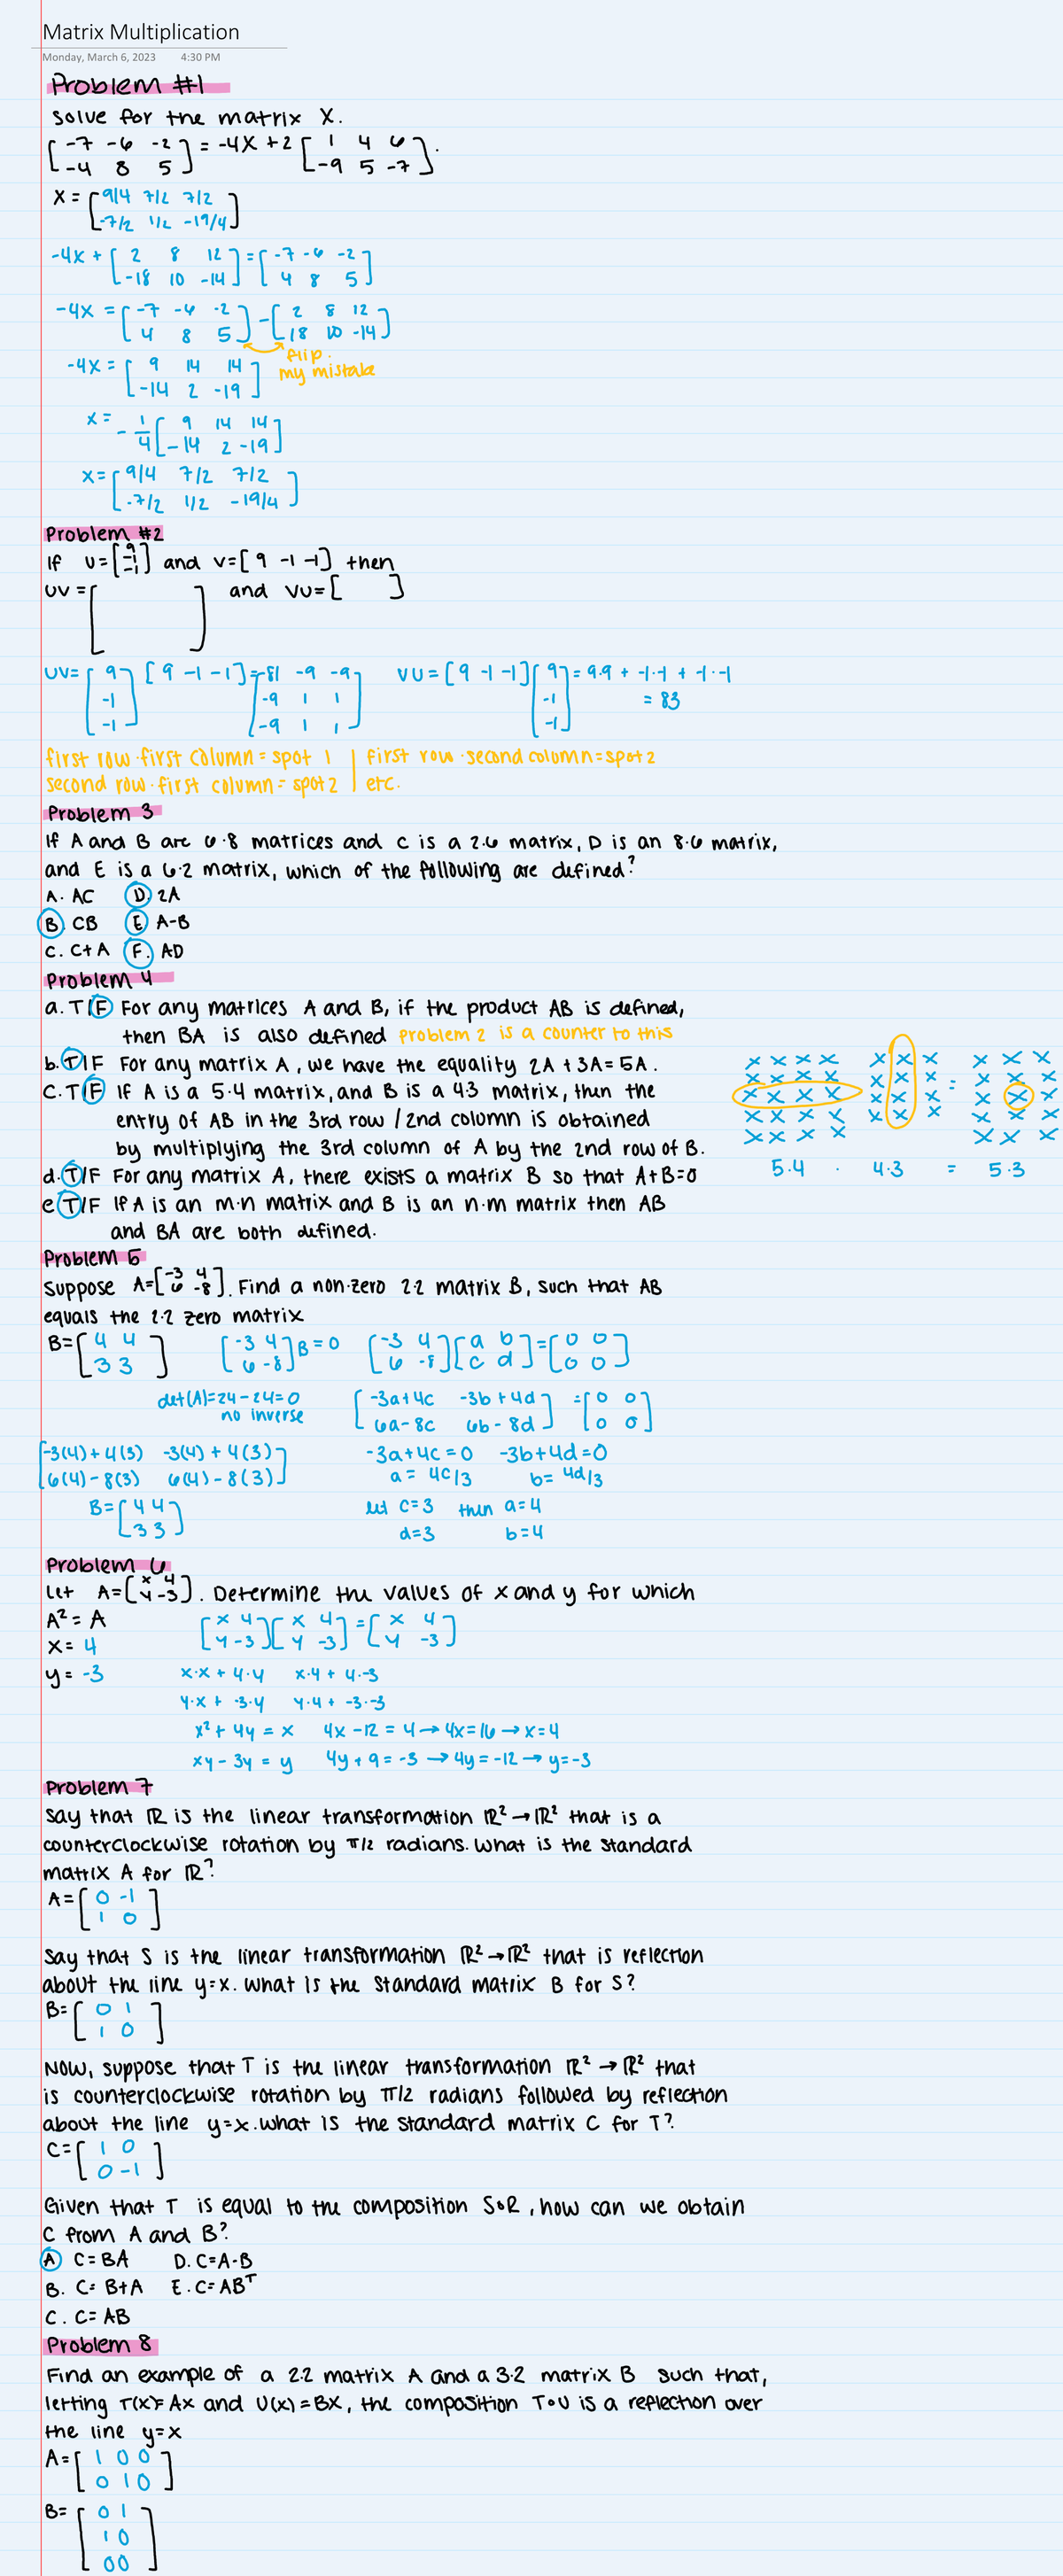 Matrix Multiplication
Monday, March 6, 2023 4:30 PM
Problem #1
Solve for the matrix X.
[-7 -6 -2 = -4X + 2 [1 4 6
-4 8 5] -9 5 -7].
X = [9/4 7/2 7/2
-7/2 1/2 -19/4]
-4X + [2 8 12 = [-7 -6 -2
-18 10 -14] 4 8 5]
-4X = [-7 -6 -2 - [2 8 12
4 8 5] 18 10 -14]
flip.
my mistake
-4X = [9 14 14
-14 2 -19]
X = -1/4 [9 14 14
-14 2 -19]
X = [9/4 7/2 7/2
-7/2 1/2 -19/4]
Problem #2
If U = [9 -1 -1] and V = [9 -1 -1] then
UV = [ ] and VU = [ ]
UV = [9 [9 -1 -1] = [81 -9 -9 VU = [9 -1 -1] [9 = 9·9 + -1·-1 + -1·-1
-1 -9 1 1 -1 = 83
-1] -9 1 1] -1]
first row·first column = spot 1 | first row·second column = spot 2
second row·first column = spot 2 | etc.
Problem 3
If A and B are 6·8 matrices and C is a 2·6 matrix, D is an 8·6 matrix,
and E is a 6·2 matrix, which of the following are defined?
A. AC D. 2A
B. CB E A-B
C. C+A F. AD
Problem 4
a. T/F For any matrices A and B, if the product AB is defined,
then BA is also defined problem 2 is a counter to this
b. T/F For any matrix A, we have the equality 2A + 3A = 5A.
C. T/F If A is a 5·4 matrix, and B is a 4·3 matrix, then the
entry of AB in the 3rd row / 2nd column is obtained
by multiplying the 3rd column of A by the 2nd row of B.
x x x x x x x x x x
x x x x x x x = x x x
x x x x x x x x x x
x x x x x x x x x x
x x x x x x x
5·4 · 4·3 = 5·3
d. T/F For any matrix A, there exists a matrix B so that A+B=0
e T/F If A is an m·n matrix and B is an n·m matrix then AB
and BA are both defined.
Problem 5
Suppose A = [-3 4 6 -8]. Find a non-zero 2·2 matrix B, such that AB
equals the 2·2 zero matrix
B = [4 4 [-3 4 B = 0 [-3 4 [a b = [0 0
3 3] 6 -8] 6 -8] c d] 0 0]
det(A) = 24 - 24 = 0 [-3a+4c -3b+4d = [0 0
no inverse 6a-8c 6b-8d] 0 0]
[-3(4)+4(3) -3(4)+4(3) -3a+4c=0 -3b+4d=0
6(4)-8(3) 6(4)-8(3)] a = 4c/3 b = 4d/3
B = [4 4 let c=3 then a=4
3 3] d=3 b=4
Problem 6
Let A = [x 4 y -3]. Determine the values of x and y for which
A² = A [x 4 [x 4 = [x 4
x = 4 y -3] y -3] y -3]
y = -3 x·x + 4·y x·4 + 4·-3
y·x + -3·y y·4 + -3·-3
x² + 4y = x 4x - 12 = 4 → 4x = 16 → x = 4
xy - 3y = y 4y + 9 = -3 → 4y = -12 → y = -3
Problem 7
Say that ℝ is the linear transformation ℝ² → ℝ² that is a
counterclockwise rotation by π/2 radians. What is the standard
matrix A for ℝ?
A = [0 -1
1 0]
Say that S is the linear transformation ℝ² → ℝ² that is reflection
about the line y=x. What is the standard matrix B for S?
B = [0 1
1 0]
Now, suppose that T is the linear transformation ℝ² → ℝ² that
is counterclockwise rotation by π/2 radians followed by reflection
about the line y=x. What is the standard matrix C for T?
C = [1 0
0 -1]
Given that T is equal to the composition S∘R, how can we obtain
C from A and B?
A C = BA D. C = A-B
B. C = B+A E. C = ABᵀ
C. C = AB
Problem 8
Find an example of a 2·2 matrix A and a 3·2 matrix B such that,
letting T(x) = Ax and U(x) = BX, the composition T∘U is a reflection over
the line y=x
A = [1 0 0
0 1 0]
B = [0 1
1 0
0 0]